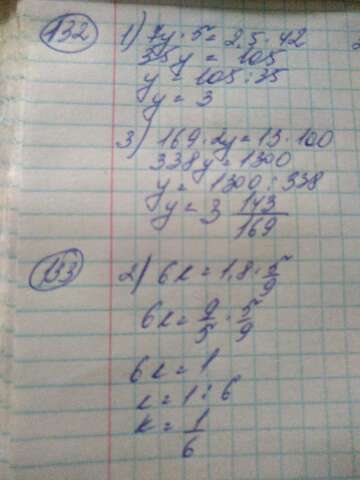 132 1) 7y · 5 = 2,5 · 42
35y = 105
y = 105 : 35
y = 3
3) 169 · 2y = 13 · 100
338y = 1300
y = 1300 : 338
y = 3 143/169
133 2) 6x = 1,8 · 5/9
6x = 9/5 · 5/9
6x = 1
x = 1 : 6
x = 1/6